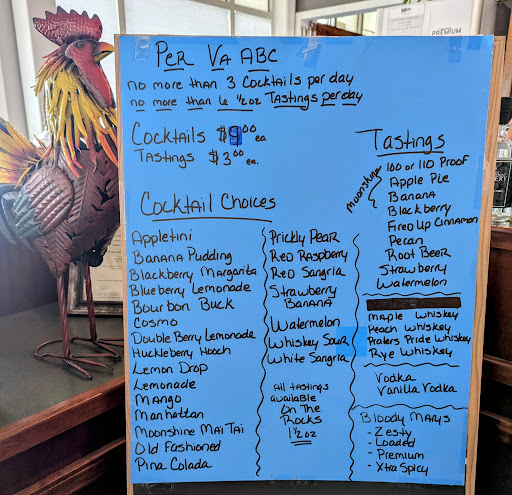 Per Va ABC
no more than 3 Cocktails per day
no more than 6 1/2 oz Tastings per day
Cocktails $9.00 ea
Tastings $3.00 ea.
Cocktail Choices
Appletini
Banana Pudding
Blackberry Margarita
Blueberry Lemonade
Bourbon Buck
Cosmo
Double Berry Lemonade
Huckleberry Hooch
Lemon Drop
Lemonade
Mango
Manhattan
Moonshine Mai Tai
Old Fashioned
Pina Colada
Prickly Pear
Red Raspberry
Red Sangria
Strawberry
Banana
Watermelon
Whiskey Sour
White Sangria
All tastings
available
On The
Rocks
1 1/2 oz
Tastings
Moonshine
100 or 110 Proof
Apple Pie
Banana
Blackberry
Fired Up Cinnamon
Pecan
Root Beer
Strawberry
Watermelon
Maple Whiskey
Peach Whiskey
Praters Pride Whiskey
Rye Whiskey
Vodka
Vanilla Vodka
Bloody Marys
- Zesty
- Loaded
- Premium
- Xtra Spicy
PREMIUM